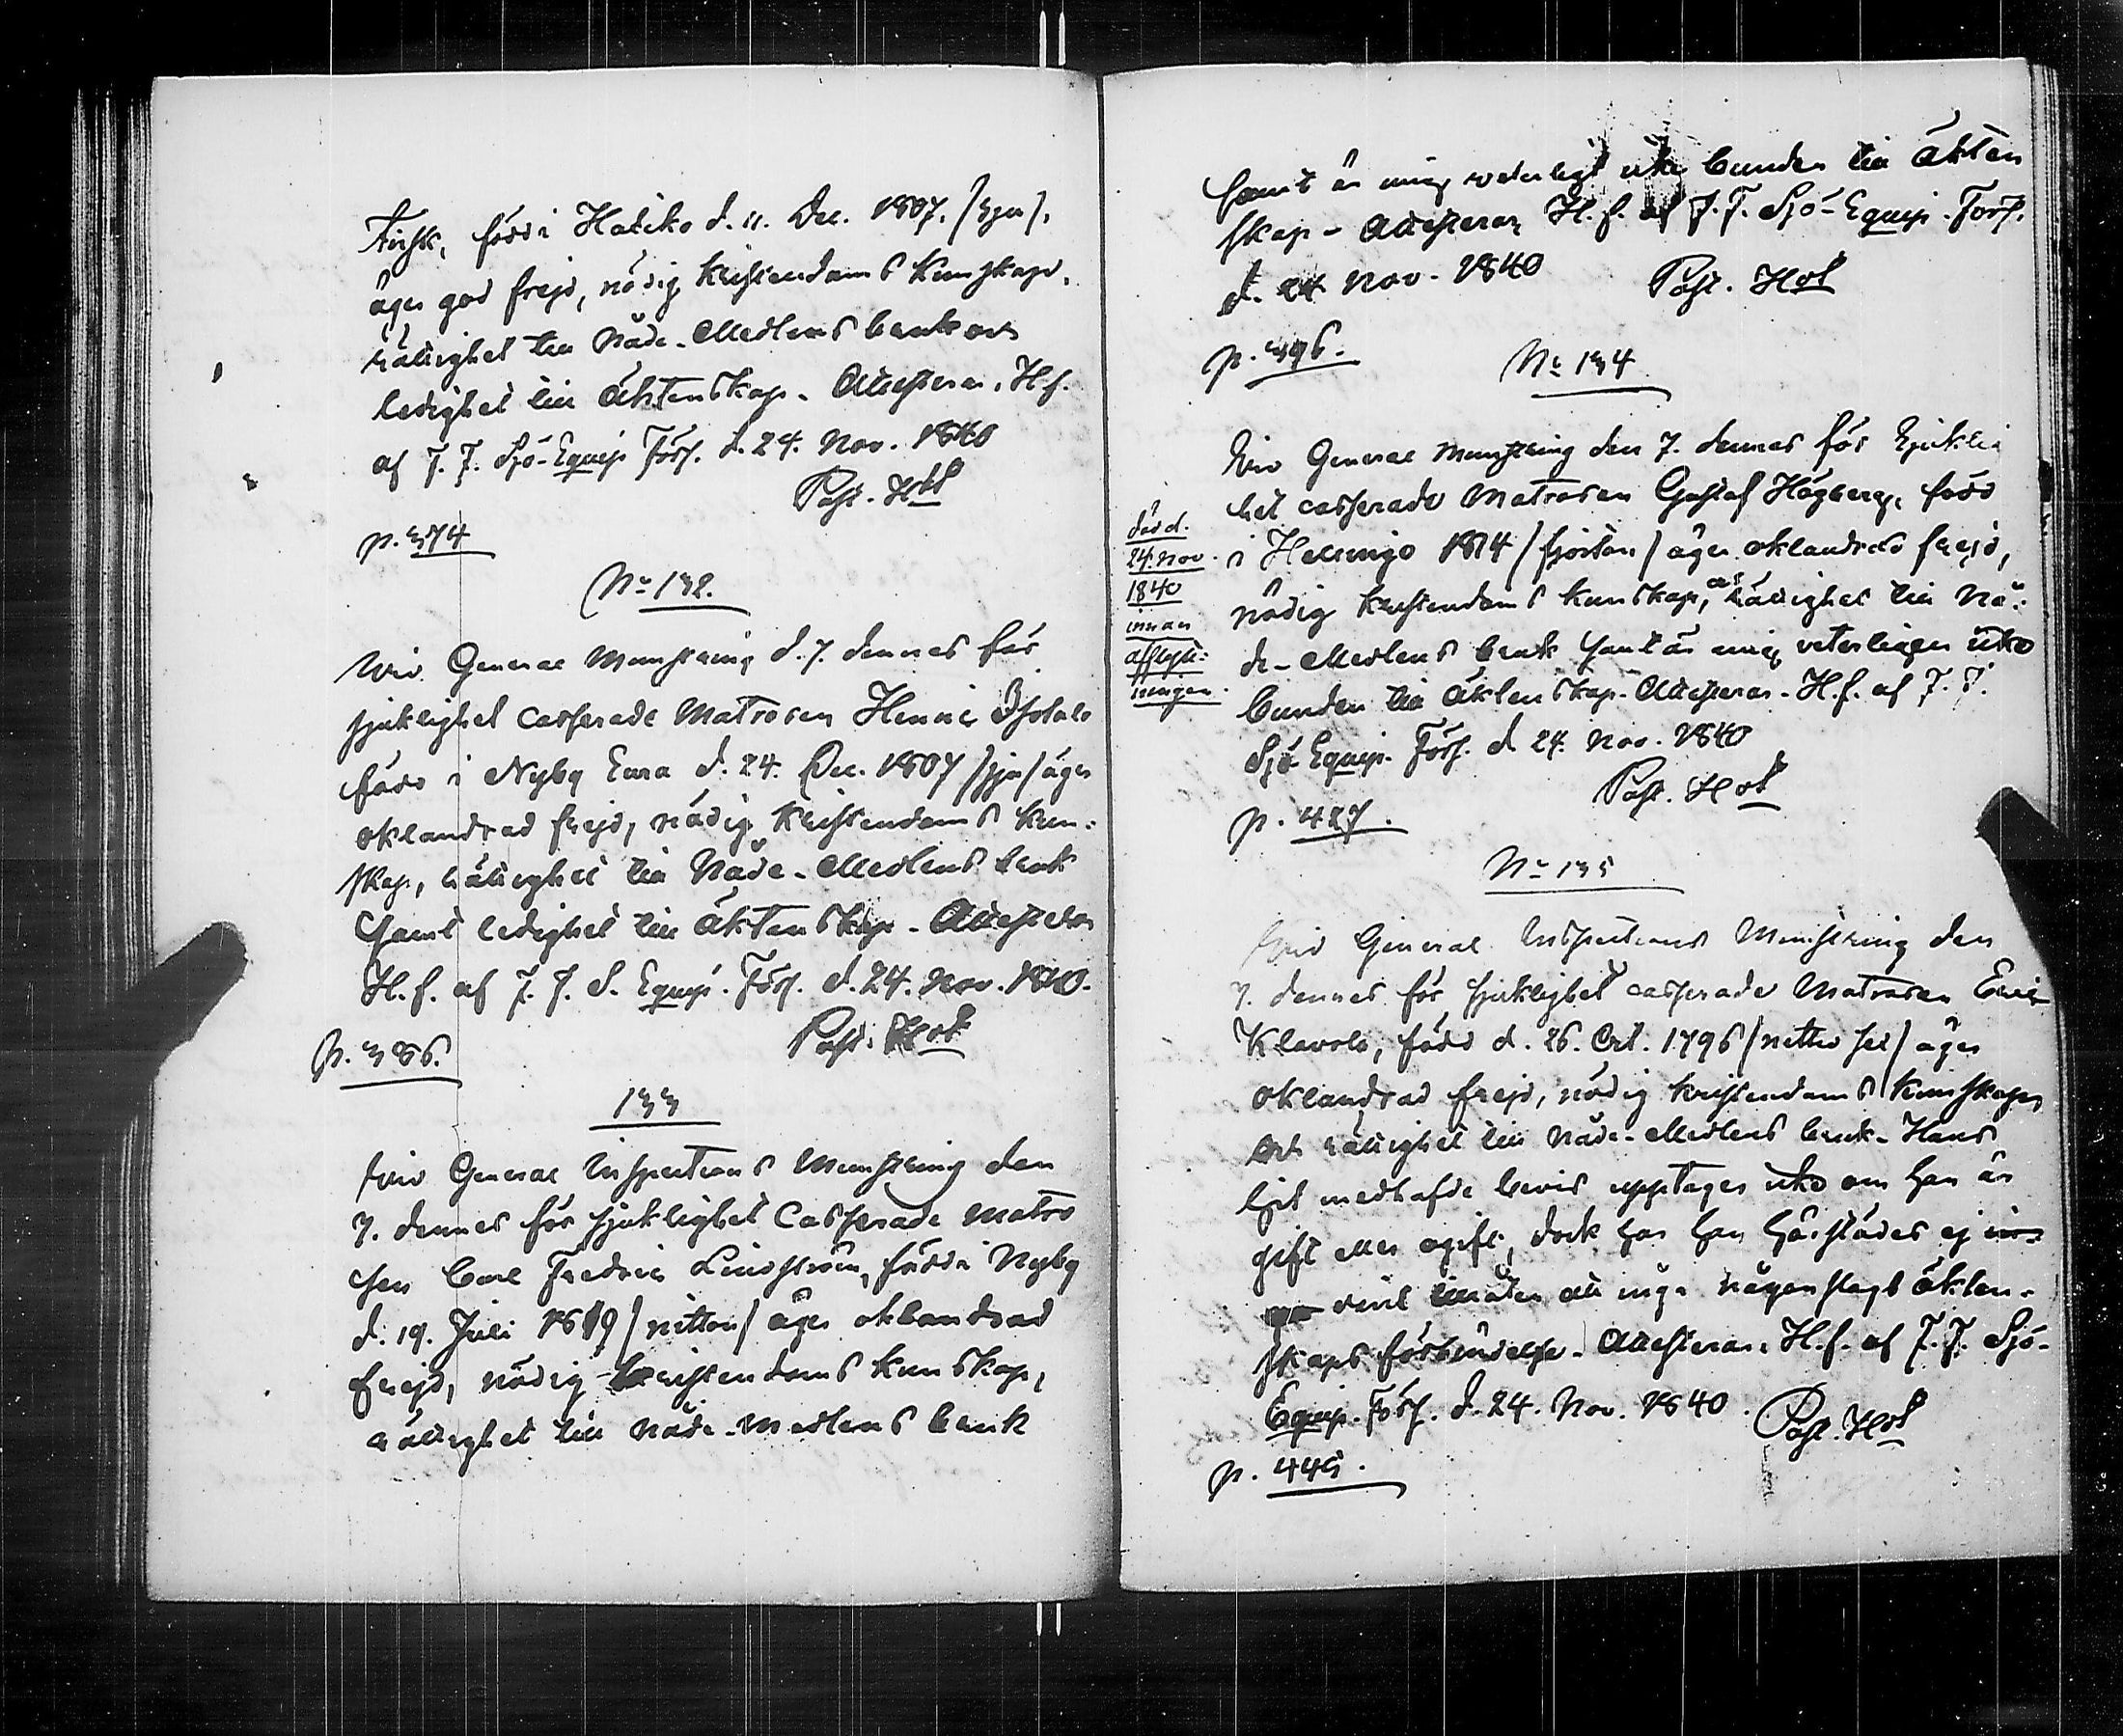 Fisk, född i Haliko d. 11. Dec. 1807. /sju/,
äger god frejd, nödig kristendoms kunskap,
rättighet till Nåde-Medlens bruk och
ledighet till äktenskap. Attesterar. H.f.
af F. F. Sjö-Equip. Förs. d. 24. Nov. 1840
Past. Hbl
p. 374
No 132.
Wid General Munstring d. 7. dennes för
sjuklighet casserade Matrosen Henric
född i Nyby Eura d. 24. Dec. 1807 /sju/ äger
oklandrad frejd, nödig kristendoms kun:
skap, rättighet till Nåde-Medlens bruk
samt ledighet till äktenskap. Attesterar
H.f. af F. F. S. Equip. Förs. d. 24. Nov. 1840.
Past. Hbl
p. 386.
133
Wid General Inspections Munstring den
7. dennes för sjuklighet casserade Matro
sen Carl Fredric Lindström, född i Nyby
d. 19. Juli 1819 /nitton/ äger oklandrad
frejd, nödig kristendoms kunskap,
rättighet till Nåde-Medlens bruk
samt är mig veterligt icke bunden till äkten
skap - Attesterar H.f. af F. F. Sjö-Equip. Förs.
d. 24 Nov. 1840 Past. Hbl
p. 396.
No 134
Wid General Munstring den 7. dennes för sjuklig
het casserade Matrosen Gustaf Högberg, född
i Helsinge 1814 /fjorton/ äger oklandrad frejd,
nödig kristendoms kunskap, och rättighet till Nå:
de-Medlens bruk samt är mig veterligen icke
bunden till äktenskap. Attesterar. H.f. af F. F.
Sjö-Equip. Förs. d 24. Nov. 1840
Past. Hbl
död d.
24. Nov.
1840
innan
afflytt:
ningen.
p. 427.
No 135
Wid General Inspections Munstring den
7. dennes för sjuklighet casserade Matrosen Eric
född d. 26. Oct. 1796 /nittio sex/ äger
oklandrad frejd, nödig kristendoms kunskap,
och rättighet till Nåde-Medlens bruk. Hans
hit medhafde bevis upptager icke om han är
gift eller ogift, dock har han härstädes ej
att ingå någon slags äkten-
skaps förbindelse. Attesterar. H.f. af F. F. Sjö-
Equip. Förs. d. 24. Nov. 1840. Past. Hbl
p. 445.